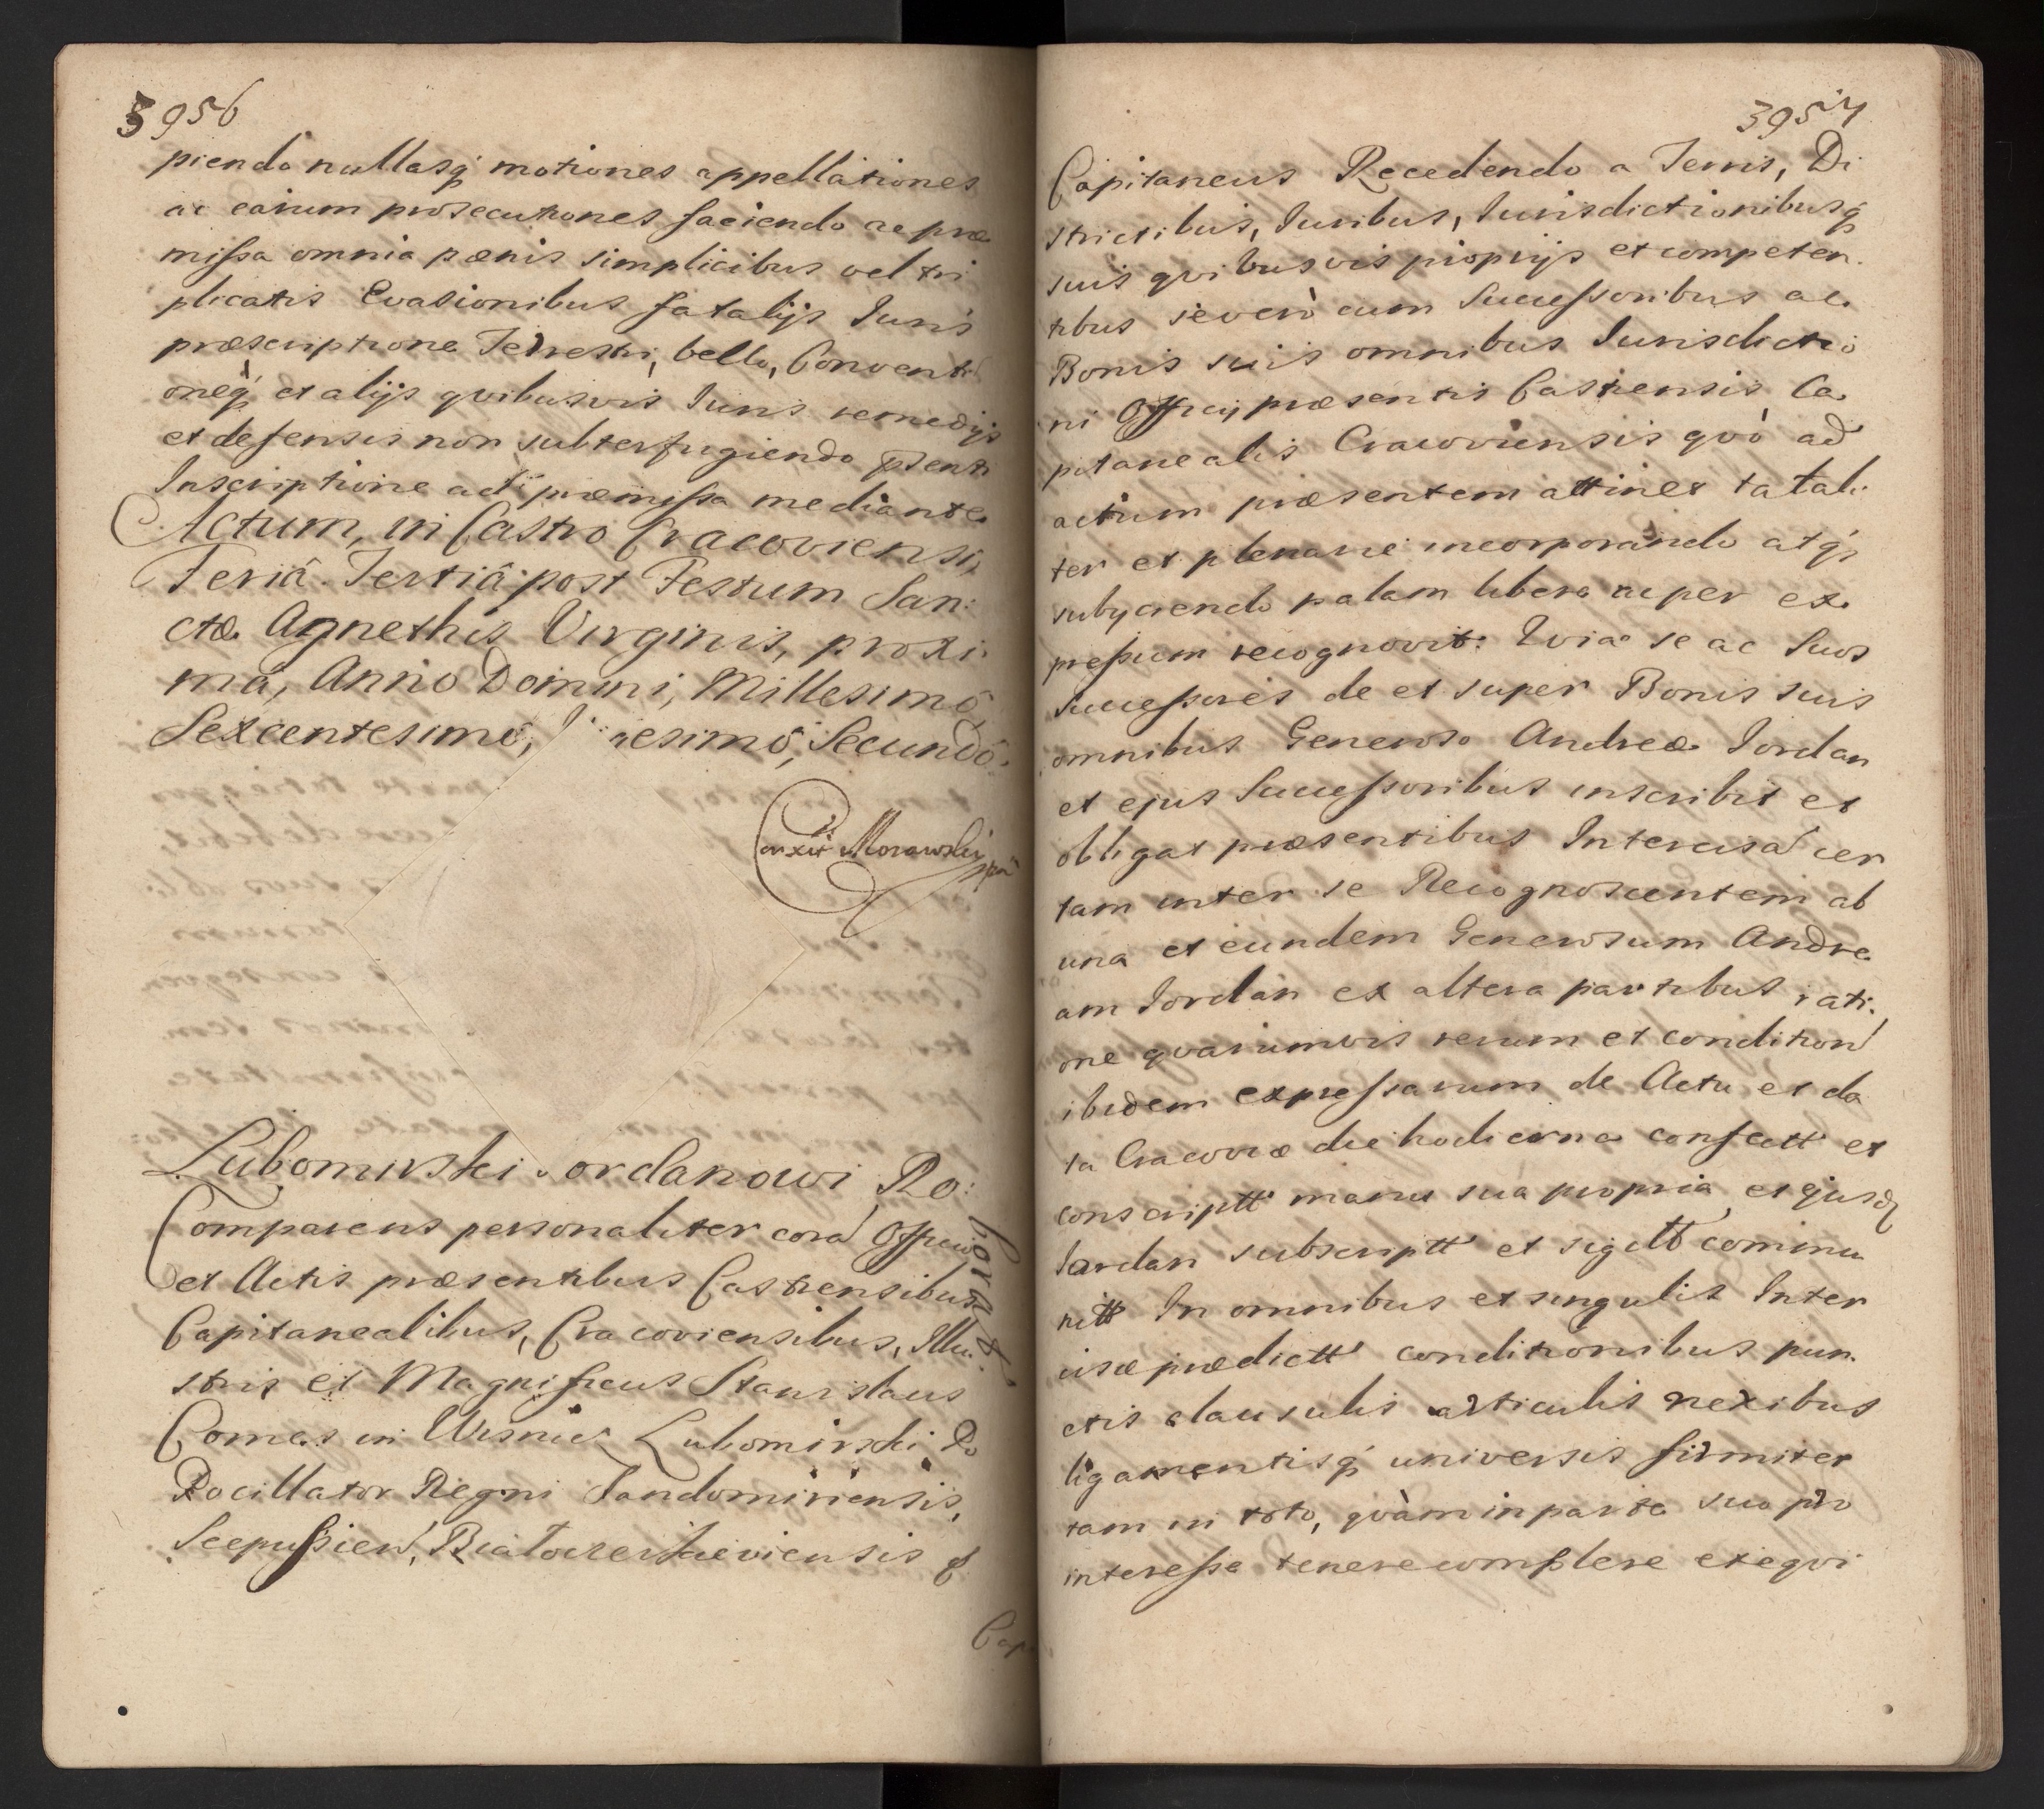 3956
piendo nullasq́ motiones appellationes
ac earum prosecutiones faciendo ac præ
missa omnia pænis simplicibus vel tri
plicatis Evasionibus fatalijs Iuris
præscriptione Terrestri, bello, Conventi
oneq́ et alijs qvibusvis Iuris remedijs
et defensis non subterfugiendo
Inscriptione ad præmissa mediante
Actum, in Castro Cracoviensi,
Feriâ Tertiâ post Festum San:
ctæ Agnethis Virginis, proxi:
mâ, Anno Domini, Millesimô
Sexcentesimô, esimô, Secundô.
Morawski
Lubomirski ordanowi Ro:
borat
Comparens personaliter corã Officio
et Actis præsentibus Castrensibus
Capitanealibus, Cracoviensibus, Illu:
stris et Magnificus Stanislaus
Comes in Wisnicz Lubomirski Po
Pocillator Regni Sandomiriensis,
Scepusien, Białocerkieviensis &
Cap
3957
Capitaneus Recedendo a Terris, Di
strictibus, Iuribus, Iurisdictionibusq́
suis qvibusvis proprijs et competen
tibus severò cum Successoribus ac
Bonis suis omnibus Iurisdictio
ni Officij præsentis Castrensis Ca
pitanealis Cracoviensis qvò ad
actum præsentem attinet totali
ter et plenarie incorporando atq́
subyciendo palam libere ac per ex
pressum recognovit: Qvia se ac Suos
Successores de et super Bonis suis
omnibus Generoso Andreæ Iordan
et ejus Successoribus inscribit et
obligat præsentibus Intercisã cer
tam inter se Recognoscentem ab
una et eundem Generosum Andre
am Iordan ex altera partibus rati
one qvarumvis rerum et condition
ibidem expressarum de Actu et da
ta Cracoviæ die hodierna confectt et
conscriptt manu sua propria et ejusd
Iordan subscriptt et sigilt commu
nitt In omnibus et singulis Inter
cisæ prædictt conditionibus pun
ctis clausulis articulis nexibus
ligamentisq́ universis firmiter
tam in toto, qvàm in parte suo pro
interesse tenere complere exeqvi